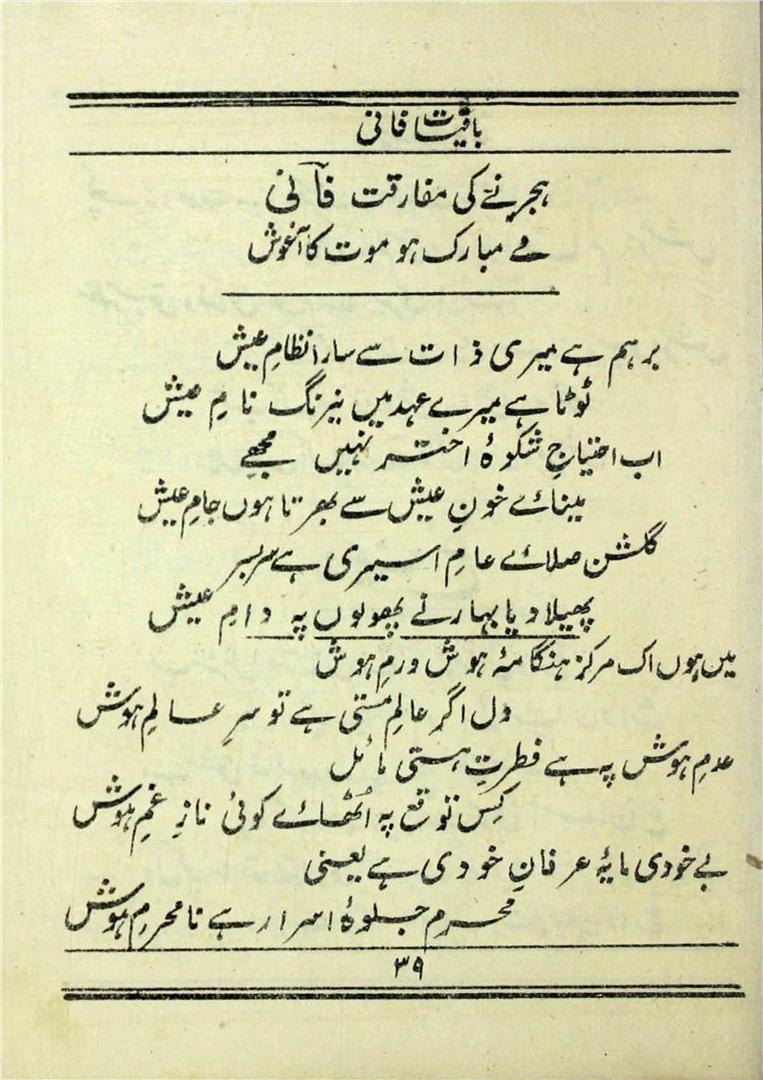 باقیات فانی
ہجر نے کی مفارقت فانی
لے مبارک ہو موت کا آغوش
برہم ہے میری ذات سے سارا نظامِ عیش
ٹوٹا ہے میرے عہد میں نیرنگ نامِ عیش
اب احتیاجِ شکوۂ اختر نہیں مجھے
مینائے خونِ عیش سے بھرتا ہوں جامِ عیش
گلشن صلائے عامِ اسیری ہے سربسر
پھیلا دیا بہار نے پھولوں پہ دامِ عیش
میں ہوں اک مرکز ہنگامۂ ہوش ورمِ ہوش
دل اگر عالمِ مستی ہے تو سر عالمِ ہوش
عدمِ ہوش پہ ہے فطرتِ ہستی مائل
کس توقع پہ اُٹھائے کوئی نازِ غمِ ہوش
بے خودی مایۂ عرفانِ خودی ہے یعنی
محرمِ جلوۂ اسرار ہے نامحرمِ ہوش
۳۹